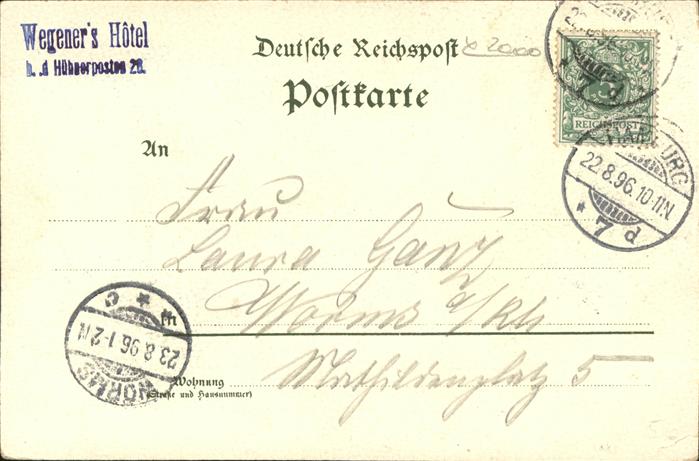 Wegener's Hôtel
b. d Hühnerposten 26.
Deutsche Reichspost
Postkarte
2000
5
REICHSPOST
22.8.96.10-11N.
* 7 d
An
Frau
Laura Ganz
Worms a/Rh
Wohnung
(Straße und Hausnummer)
Mathildenplatz 5
WORMS
23.8.96.1-2N.
* c